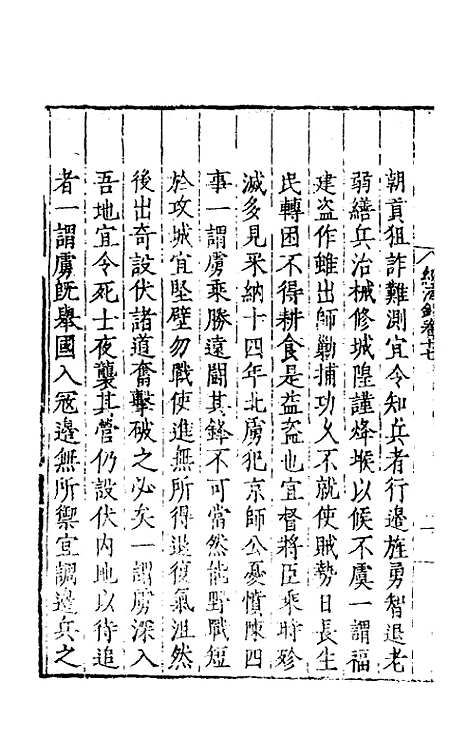 朝貢狙詐難測宜令知兵者行邊旌勇智退老
弱繕兵治械修城隍謹烽堠以候不虞一謂福
建盗作雖出師勦捕功乆不就使賊勢日長生
民轉困不得耕食是益盗也宜督將臣乗時殄
滅多見采納十四年北虜犯京師公憂憤陳四
事一謂虜乗勝遠鬬其鋒不可當然能野戰短
於攻城宜堅壁勿戰使進無所得退復氣沮然
後出奇設伏諸道奮擊破之必矣一謂虜深入
吾地宜令死士夜襲其營仍設伏内地以待追
者一謂虜旣舉國入冦邊無所禦宜調邊兵之
經濟錄卷十七